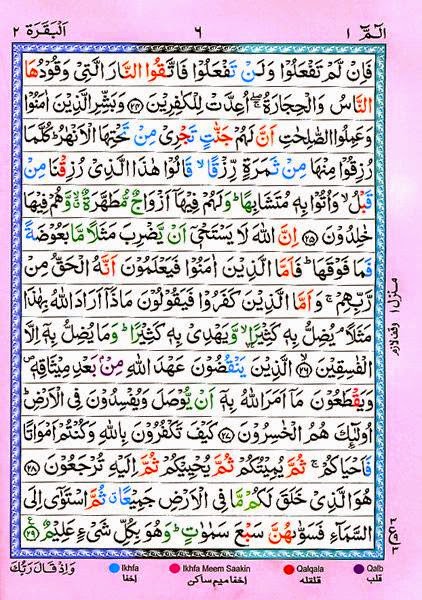 الٓمّٓ ١ ٦ اَلْبَقَرَة ٢
فَاِنْ لَّمْ تَفْعَلُوْا وَلَنْ تَفْعَلُوْا فَاتَّقُوا النَّارَ الَّتِيْ وَقُوْدُهَا
النَّاسُ وَالْحِجَارَةُ ۖۚ اُعِدَّتْ لِلْكٰفِرِيْنَ ﴿٢٤﴾ وَبَشِّرِ الَّذِيْنَ اٰمَنُوْا
وَعَمِلُوا الصّٰلِحٰتِ اَنَّ لَهُمْ جَنّٰتٍ تَجْرِيْ مِنْ تَحْتِهَا الْاَنْهٰرُ ؕ كُلَّمَا
رُزِقُوْا مِنْهَا مِنْ ثَمَرَةٍ رِّزْقًا ۙ قَالُوْا هٰذَا الَّذِيْ رُزِقْنَا مِنْ
قَبْلُ ۙ وَاُتُوْا بِهٖ مُتَشَابِهًا ؕ وَلَهُمْ فِيْهَاۤ اَزْوَاجٌ مُّطَهَّرَةٌ ۙۗ وَّهُمْ فِيْهَا
خٰلِدُوْنَ ﴿٢٥﴾ اِنَّ اللّٰهَ لَا يَسْتَحْيٖۤ اَنْ يَّضْرِبَ مَثَلًا مَّا بَعُوْضَةً
فَمَا فَوْقَهَا ؕ فَاَمَّا الَّذِيْنَ اٰمَنُوْا فَيَعْلَمُوْنَ اَنَّهُ الْحَقُّ مِنْ
رَّبِّهِمْ ۚ وَاَمَّا الَّذِيْنَ كَفَرُوْا فَيَقُوْلُوْنَ مَاذَاۤ اَرَادَ اللّٰهُ بِهٰذَا
مَثَلًا ۘ يُضِلُّ بِهٖ كَثِيْرًا ۙ وَّيَهْدِيْ بِهٖ كَثِيْرًا ؕ وَمَا يُضِلُّ بِهٖۤ اِلَّا
الْفٰسِقِيْنَ ﴿٢٦﴾ الَّذِيْنَ يَنْقُضُوْنَ عَهْدَ اللّٰهِ مِنْۢ بَعْدِ مِيْثَاقِهٖ ۪
وَيَقْطَعُوْنَ مَاۤ اَمَرَ اللّٰهُ بِهٖۤ اَنْ يُّوْصَلَ وَيُفْسِدُوْنَ فِي الْاَرْضِ ؕ
اُولٰٓئِكَ هُمُ الْخٰسِرُوْنَ ﴿٢٧﴾ كَيْفَ تَكْفُرُوْنَ بِاللّٰهِ وَكُنْتُمْ اَمْوَاتًا
فَاَحْيَاكُمْ ۚ ثُمَّ يُمِيْتُكُمْ ثُمَّ يُحْيِيْكُمْ ثُمَّ اِلَيْهِ تُرْجَعُوْنَ ﴿٢٨﴾
هُوَ الَّذِيْ خَلَقَ لَكُمْ مَّا فِي الْاَرْضِ جَمِيْعًا ۗ ثُمَّ اسْتَوٰۤى اِلَى
السَّمَآءِ فَسَوّٰىهُنَّ سَبْعَ سَمٰوٰتٍ ؕ وَهُوَ بِكُلِّ شَيْءٍ عَلِيْمٌ ﴿٢٩﴾
منزل ١
وقف لازم
وَاِذْ قَالَ رَبُّكَ
Ikhfa Ikhfa Meem Saakin Qalqala Qalb
اخفا اخفا میم ساکن قلقلہ قلب